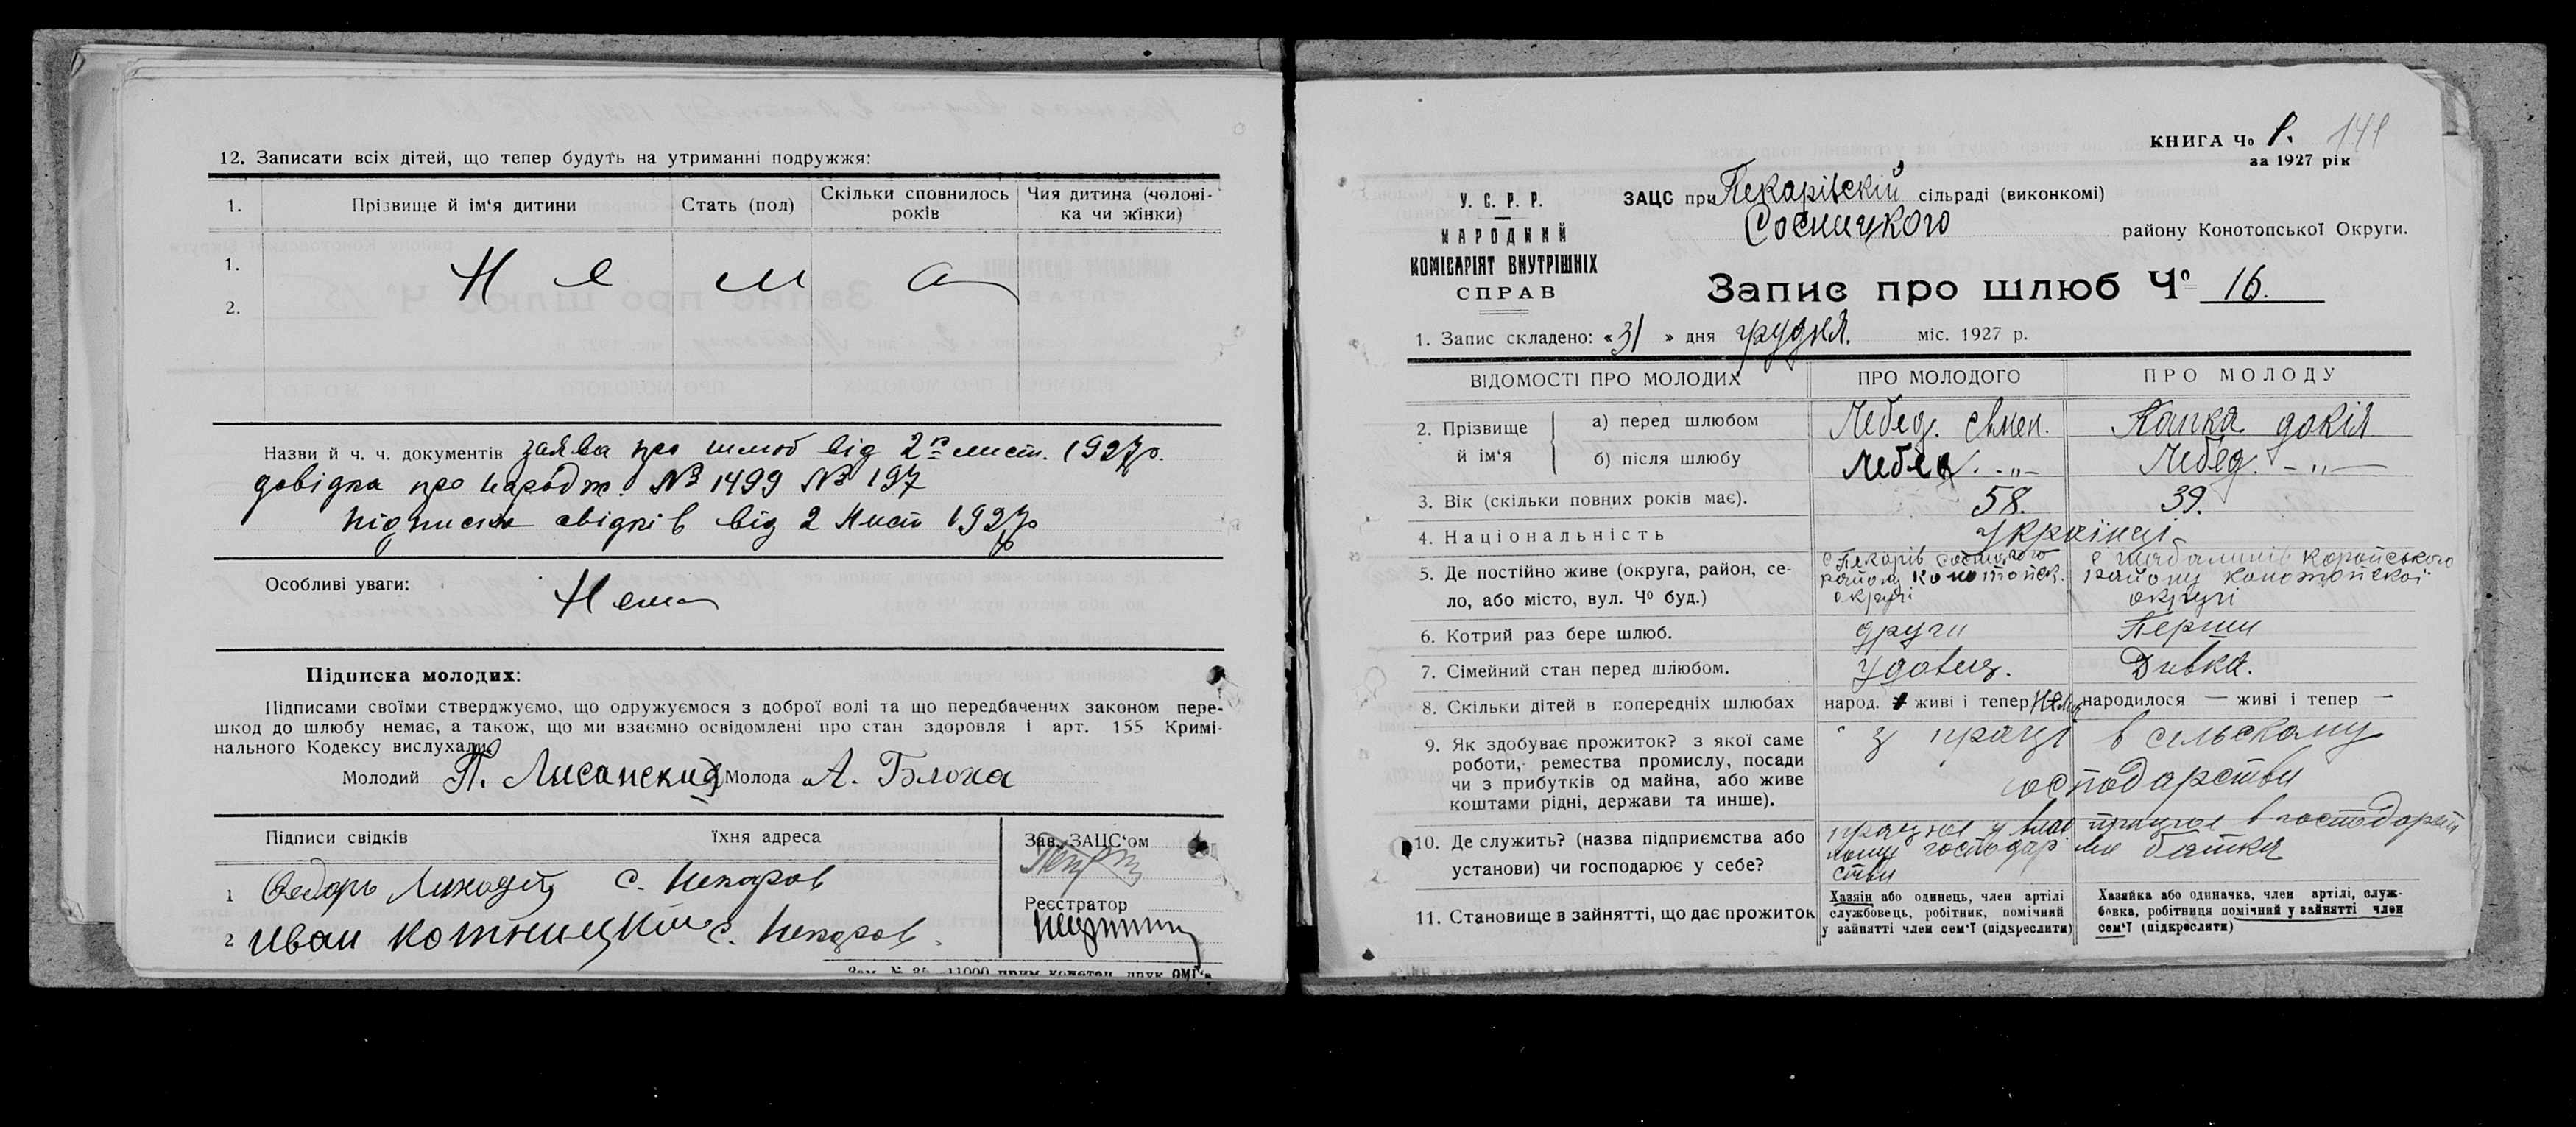 12. Записати всіх дітей, що тепер будуть на утриманні подружжя:
1. Прізвище й ім'я дитини Стать (пол) Скільки сповнилось років Чия дитина (чолові-ка чи жінки)
1. Н е м а
2.
Назви й ч. ч. документів заява про шлюб від 2го лист. 1927р.
довідка про народж. № 1499 № 197
підписка свідків від 2 Лист 1927р
Особливі уваги: Нема
Підписка молодих:
Підписами своїми стверджуємо, що одружуємося з доброї волі та що передбачених законом пере-
шкод до шлюбу немає, а також, що ми взаємно освідомлені про стан здоровля і арт. 155 Кримі-
нального Кодексу вислухали.
Молодий П. Лисанский Молода А. Блоха
Підписи свідків їхня адреса Зав. ЗАЦС'ом
1 Федорь с. Пекаров
Реєстратор
2 Иван Котницкий с. Пекаров.
КНИГА Чо 1. 141
за 1927 рік
У. С. Р. Р.
НАРОДНИЙ
КОМІСАРІЯТ ВНУТРІШНІХ
СПРАВ
ЗАЦС при Пекарівскій сільраді (виконкомі)
Сосницкого району Конотопської Округи.
Запис про шлюб Чо 16.
1. Запис складено: «31» дня грудня. міс. 1927 р.
ВІДОМОСТІ ПРО МОЛОДИХ ПРО МОЛОДОГО ПРО МОЛОДУ
2. Прізвище й ім'я а) перед шлюбом Лебед. Євмен. Капка докія
б) після шлюбу Лебед. -„- Лебед. -„-
3. Вік (скільки повних років має). 58. 39.
4. Національність Українці
5. Де постійно живе (округа, район, се-
ло, або місто, вул. Чо буд.)
с Пекарів Сосницкого
району Конотопск.
округі
с Шабалинів Коропського
району Конотопскої
округі
6. Котрий раз бере шлюб. други Перши
7. Сімейний стан перед шлюбом. Удовец. Дивка.
8. Скільки дітей в попередніх шлюбах народ. живі і тепер Нема народилося — живі і тепер —
9. Як здобуває прожиток? з якої саме
роботи, ремества промислу, посади
чи з прибутків од майна, або живе
коштами рідні, держави та инше).
з праці в сельскому
господарстви
10. Де служить? (назва підприємства або
установи) чи господарює у себе?
працює у влас
ному господар
стви
працює в господарст
ви батка
11. Становище в зайнятті, що дає прожиток
Хазяін або одинець, член артілі
службовець, робітник, помічний
у зайнятті член сем'ї (підкреслити)
Хазяйка або одиначка, член артілі, служ-
бовка, робітниця помічний у зайнятті член
сем'ї (підкреслити)